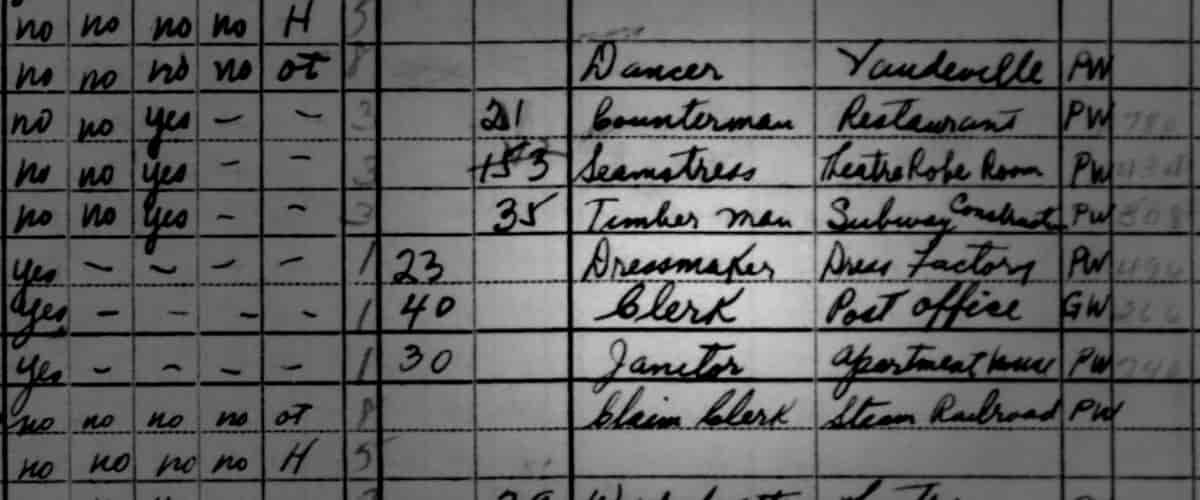 no no no no H 5
no no no no ot 8 Dancer Vaudeville PW
no no yes - - 3 21 Counterman Restaurant PW 780
no no yes - - 3 Seamstress Theatre Robe Room PW
no no yes - - 3 35 Timber man Subway Construct PW
yes - - - - 1 23 Dressmaker Dress Factory PW
yes - - - - 1 40 Clerk Post office GW
yes - - - - 1 30 Janitor apartment house PW
no no no no ot 8 Claim Clerk Steam Railroad PW
no no no no H 5